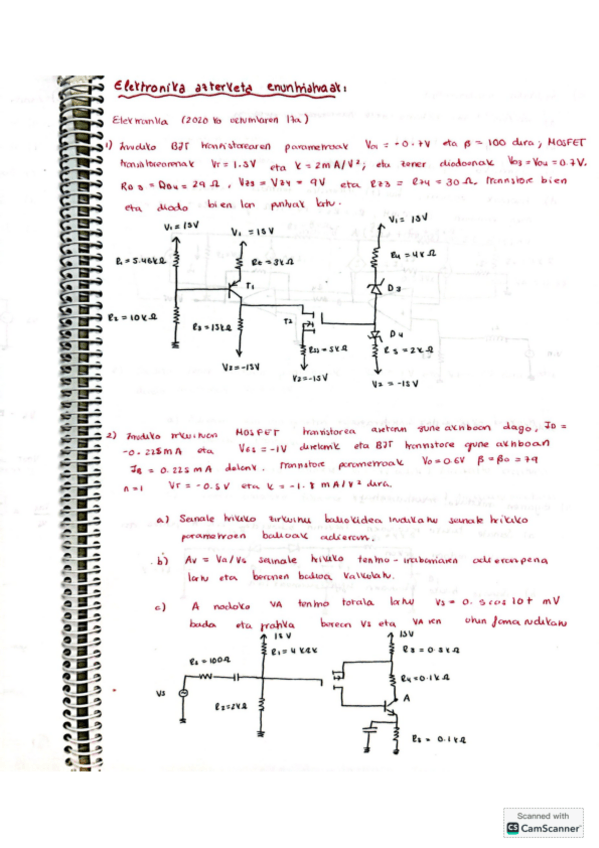 Elektronika azterketa enuntziatuak:
Elektronika (2020 ko urtarrilaren 17a)
1) Irudiko BJT tranristorearen parametroak V01 = -0.7V eta β = 100 dira; MOSFET
tranristorearenak VT = 1.5V eta K = 2mA/V²; eta zener diodoenak V03 = V04 = 0.7V.
RD3 = RD4 = 29 Ω, VZ3 = VZ4 = 9V eta RZ3 = RZ4 = 30 Ω. Tranristore bien
eta diodo bien lan puntuak lortu.
V1 = 15V
V1 = 15V
V1 = 15V
R1 = 5.46kΩ
RE = 3kΩ
R4 = 4kΩ
T1
D3
R2 = 10kΩ
R3 = 15kΩ
T2
D4
RS2 = 5kΩ
R5 = 2kΩ
V2 = -15V
V2 = -15V
V2 = -15V
2) Irudiko zirkuituan MOSFET tranristorea asetasun gune aktiboan dago, ID =
-0.225mA eta VGS = -1V direlarik eta BJT tranristore gune aktiboan
IB = 0.225mA delarik. Tranristore parametroak V0 = 0.6V β = β0 = 79
n = 1 VT = -0.5V eta K = -1.8 mA/V² dira.
a) Seinale txikiko zirkuitu baliokidea irudikatu seinale txikiko
parametroen balioak adieraziz.
b) Av = Va/Vs seinale txikiko tentsio-irabaziaren adierazpena
lortu eta beronen balioa kalkulatu.
c) A nodoko VA tentsio totala lortu Vs = 0.5cos10t mV
bada eta grafika berean Vs eta VA ren uhin forma irudikatu
15V
15V
Rs = 100Ω
R1 = 4kΩ
R3 = 0.3kΩ
R4 = 0.1kΩ
VS
A
R2 = 2kΩ
R5 = 0.1kΩ
Scanned with
CS CamScanner